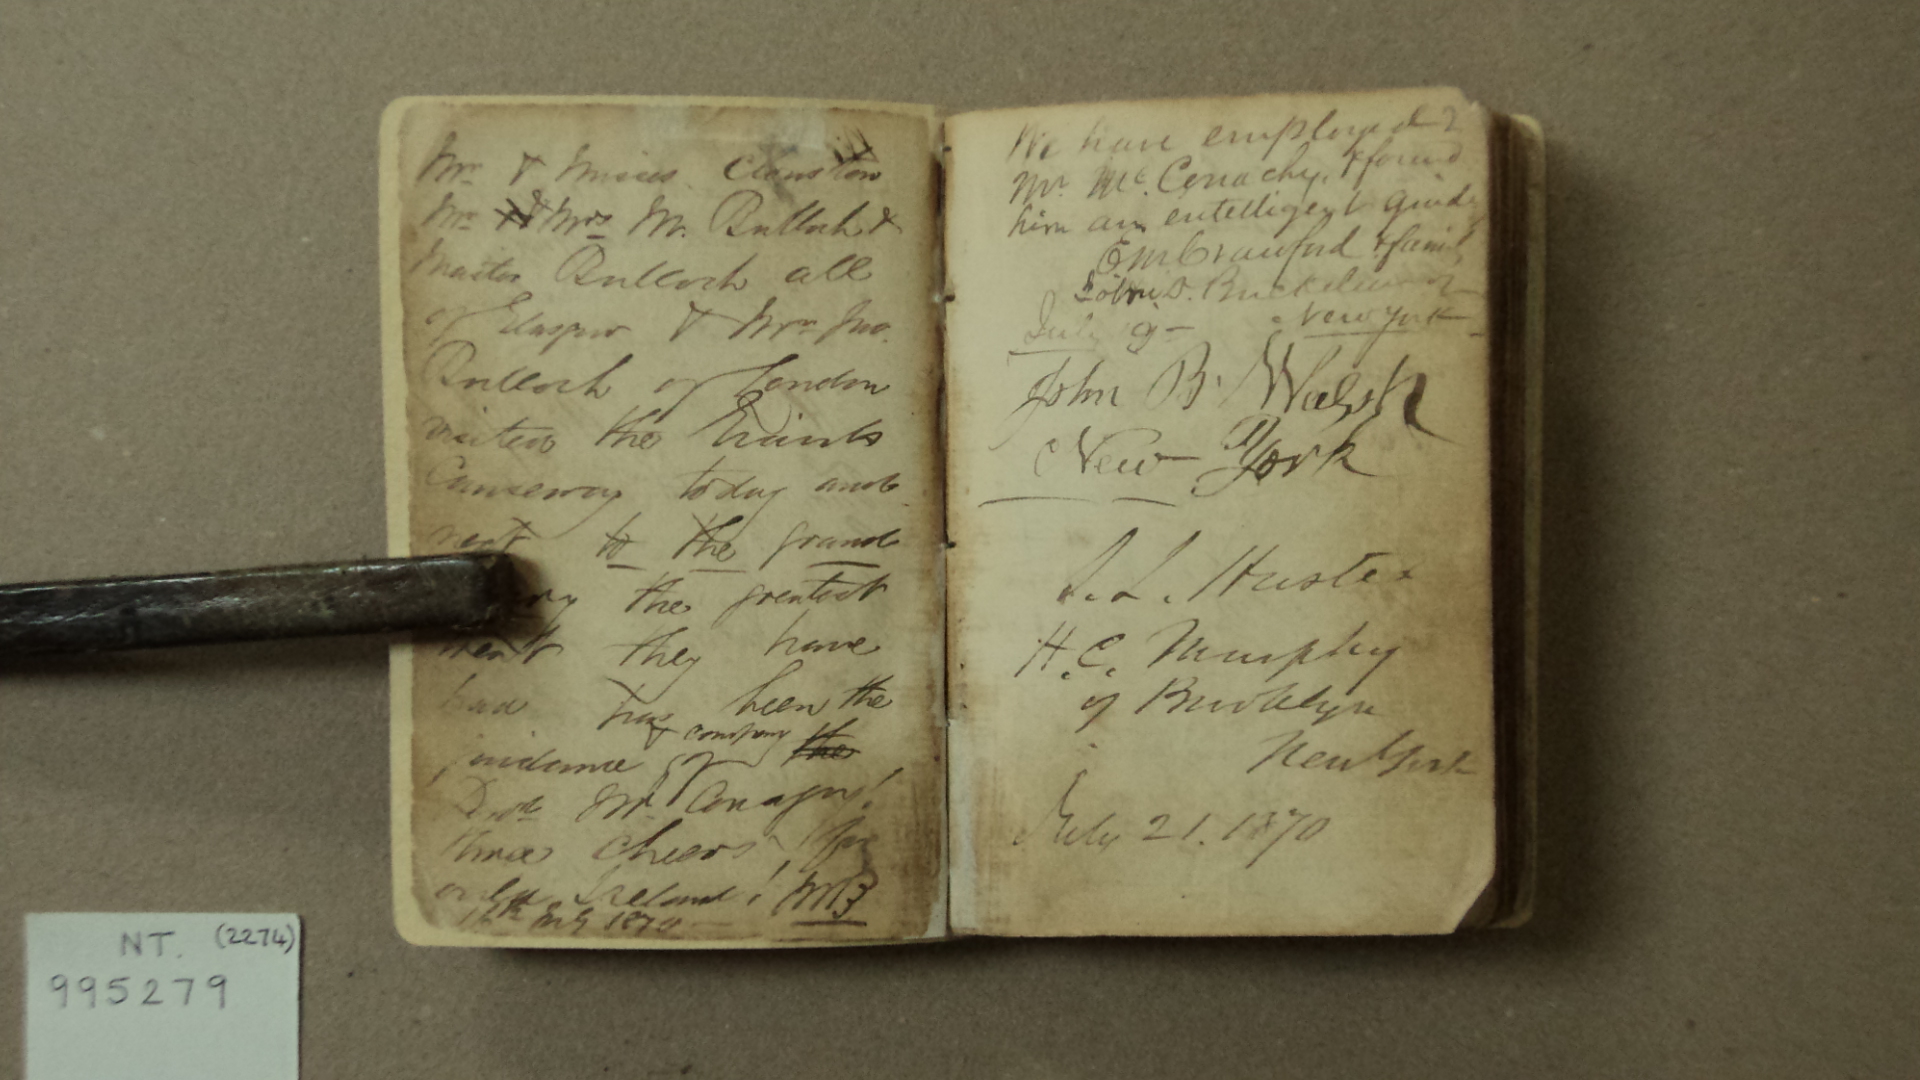 Mr & Misses Clouston
Mr & Mrs M. Bulloch &
Master Bulloch all
of Glasgow & Mrs Jno.
Bulloch of London
visited the Giants
Causeway today and
next to the grand
the greatest
treat they have
had has been the
& company
guidance of the
Mc Conaghy!
three cheers for
ould Ireland! MB
July 1870
We have employed
Mr. Mc. Conachy, & found
him an entelligent guide
E M Crawford & family
John S. Buckelew
July 19 - New York
John B. Walsh
New York
H.C. Murphy
of Brooklyn
New York
July 21. 1870
NT. (2274)
995279